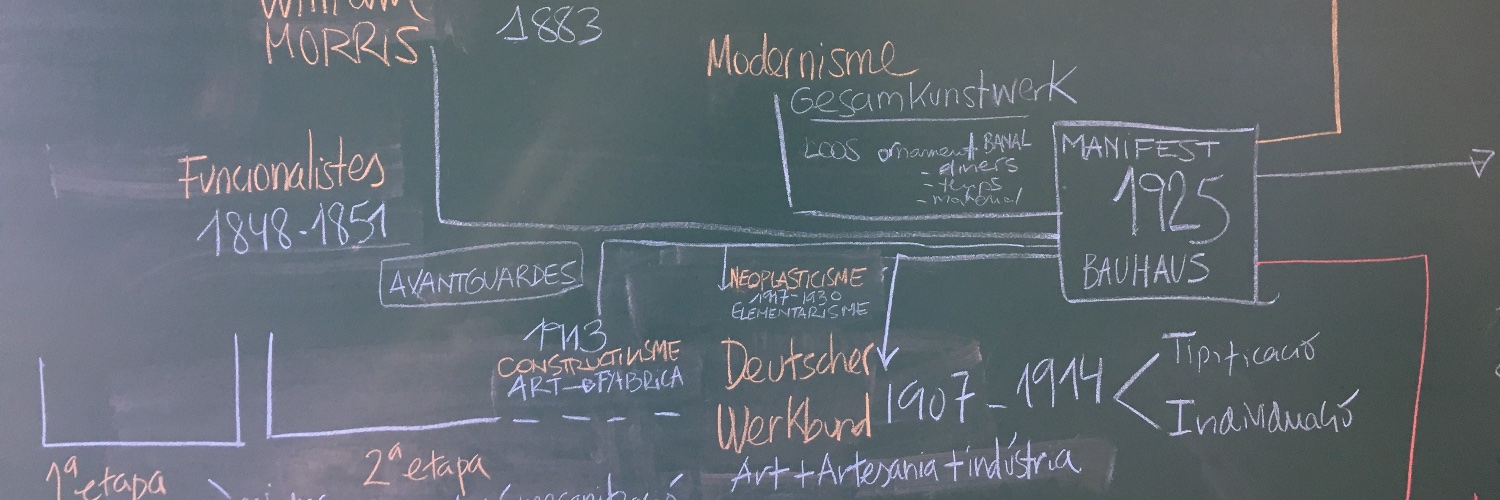 William
MORRIS
1883
Modernisme
Gesamkunstwerk
LOOS ornament BANAL
- diners
- temps
- material
MANIFEST
1925
BAUHAUS
Funcionalistes
1848-1851
AVANTGUARDES
NEOPLASTICISME
1917-1930
ELEMENTARISME
1913
CONSTRUCTIVISME
ART→FÀBRICA
Deutscher
Werkbund
1907-1914
Tipificació
Individuació
Art+Artesania+indústria
1ª etapa
2ª etapa